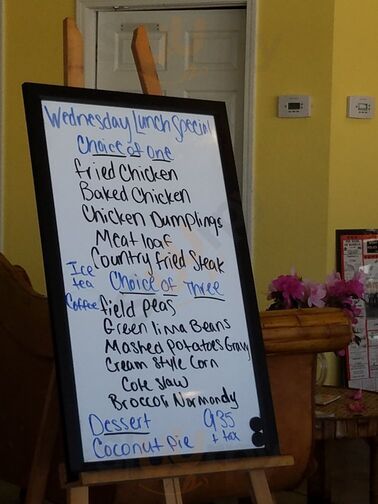 Wednesday Lunch Special
Choice of One
fried Chicken
Baked Chicken
Chicken Dumplings
Meat loaf
Country fried Steak
Ice tea
Coffee
Choice of Three
field peas
Green lima Beans
Mashed potatoes Gravy
Cream Style Corn
Cole slaw
Broccoli Normandy
Dessert 935
Coconut pie + tax